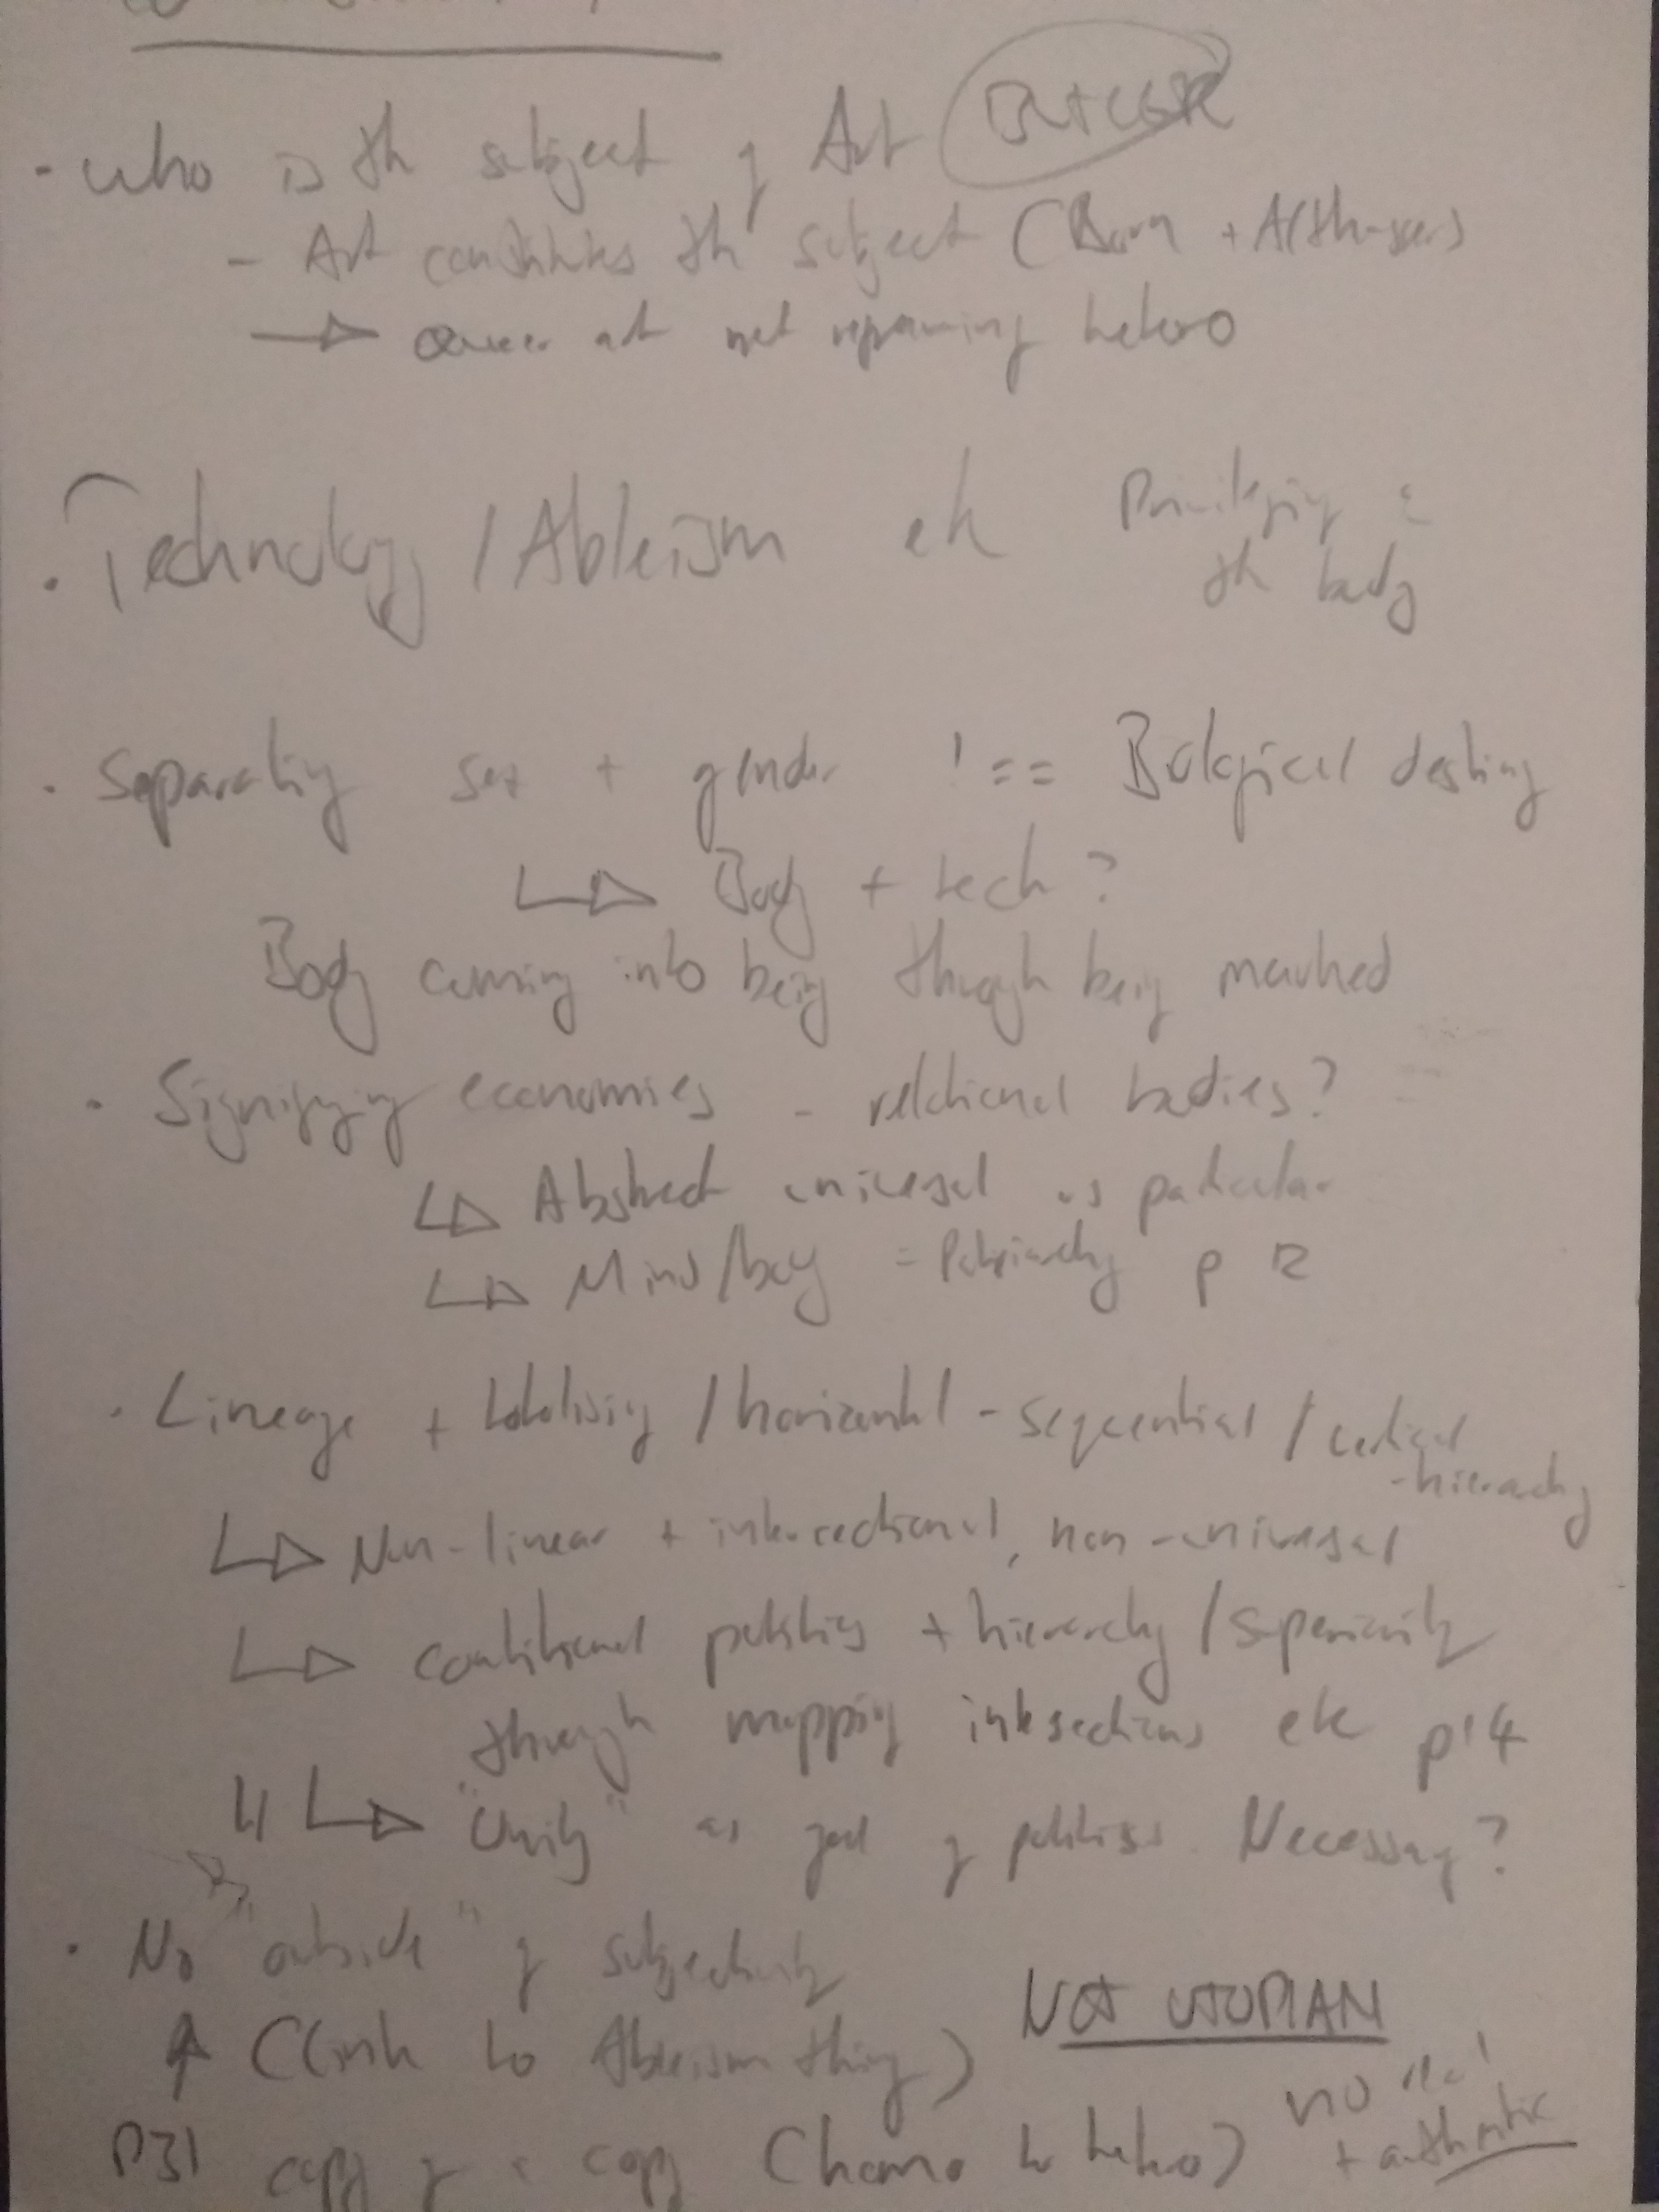 BUTLER
· Who is th subject of Art
- Art constitutes th subject (Born + Althusser)
→ Queer art not repeating hetero
· Technology / Ableism etc Privileging =
th body
· Separating sex + gender !== Biological destiny
↳ Body + tech?
Body coming into being through being marked
· Signifying economies - relational bodies?
↳ Abstract universal vs particular
↳ Mind/body = Patriarchy p 12
· Lineage + totalising / horizontal - sequential / vertical
- hierarchy
↳ Non-linear + intersectional, non-universal
↳ coalitional politics + hierarchy / superiority
through mapping intersections etc p14
↳ "Unity" as goal of politics. Necessary?
· No "outside" of subjectivity
↑ (link to Ableism thing) NOT UTOPIAN
no
+ authentic
P31 copy of a copy (homo to hetero)